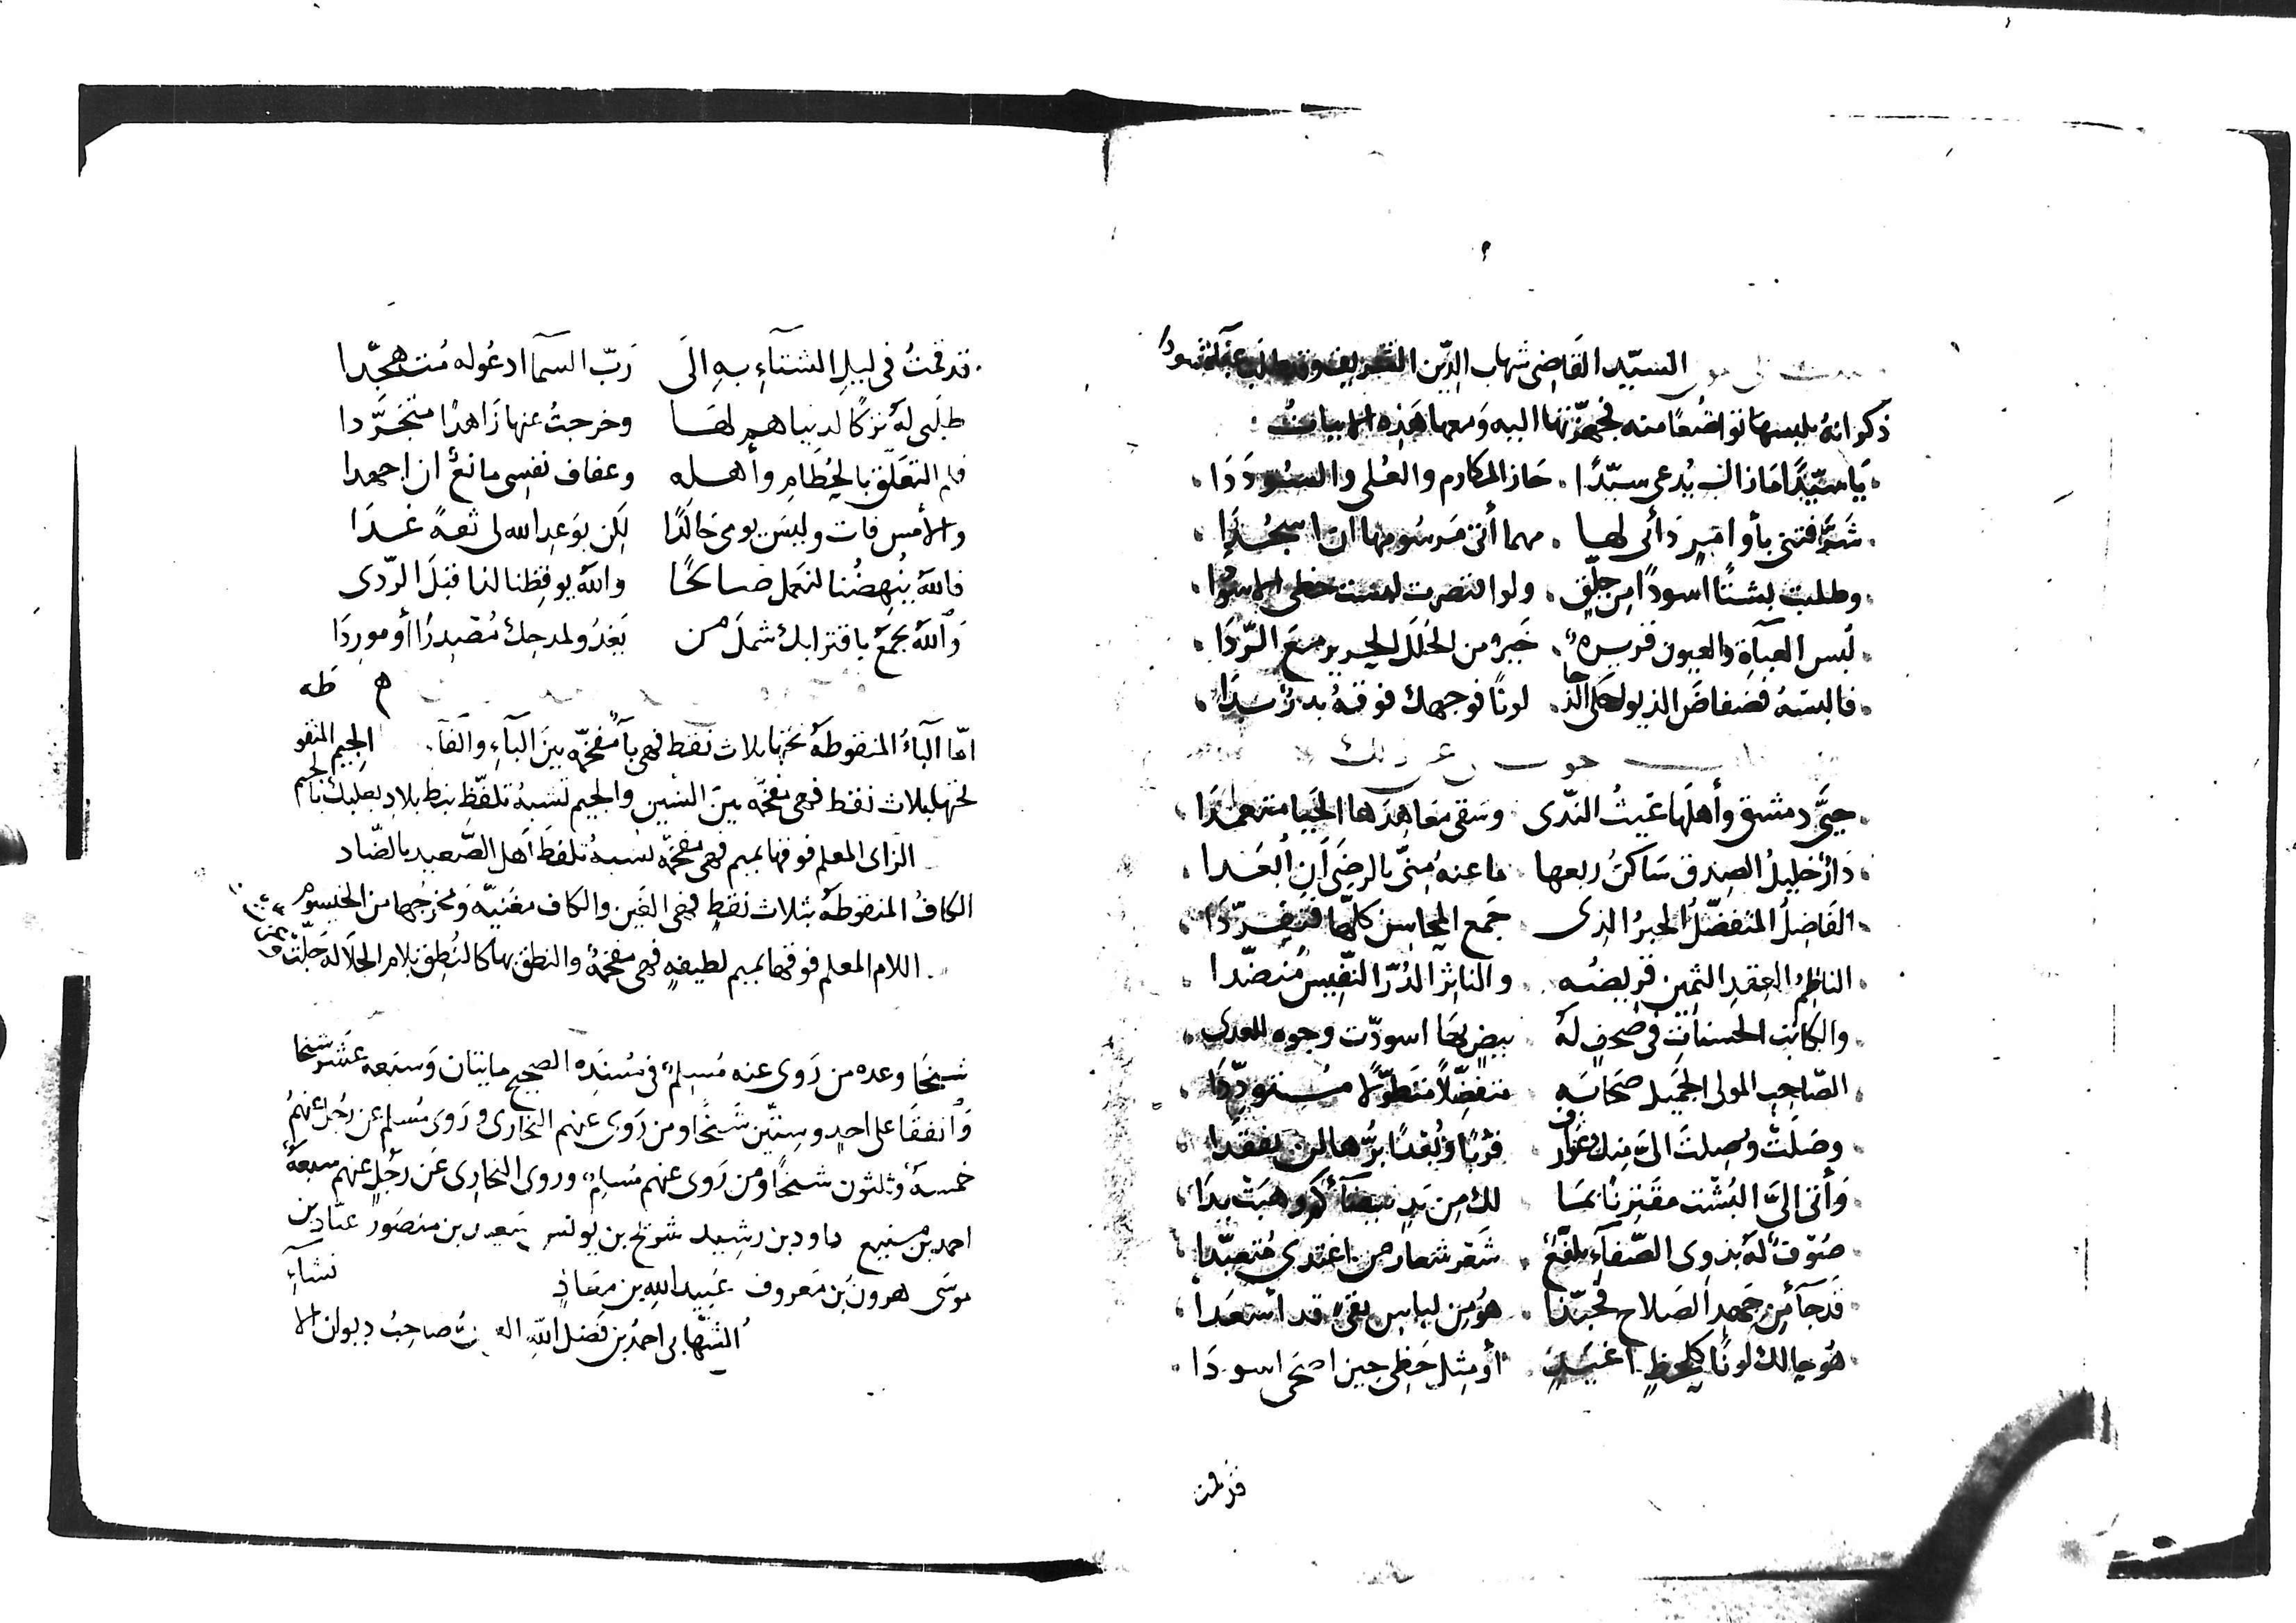 السيّد القَاضِى شهاب الدِّين الشريف
ذكر انهُ يلبسها تواضُعًا منه فجهّزتها اليه وَمعها هَذِه الابياتُ
يَا سيّدًا مَا زال يُدعى سيّدًا . حَاز المكارم والعُلى والسُّودَدَا
شَرَّفتنى بأوامِرٍ دَأبى لها . مهما أتى مَرسُومها ان اسجُدَا
وطلبت بشتًا اسودًا من جلّقٍ . ولو اقتصرت لبست حظى الاسودا
لُبس العبآةِ والعيون قريرة . خَيرٌ من الحُلَل الحرير مَعَ الرّدَا
فالبسهُ فضفاضَ الذيول لونًا فوجهك فوقهُ بدرٌ بَدَا
حيَّى دمشق وأهلَها غَيثُ النّدى وسَقى مَعَاهِدَها الحَيَا متعمّدَا
دَارٌ خليلُ الصِدق سَاكنُ ربعها ما عنهُ مِنّى بالرضَى أن اُبعَدا
الفَاضِلُ المتفضّلُ الحبرُ الذى جَمع المحاسن كلّها فتفرّدَا
الناظِمُ العِقدِ الثمِين قريضُه والناثِرُ الدُرّ النّفِيسَ مُنضّدا
والكاتب الحسناتِ فى صُحفٍ لَهُ بيضٍ بهَا اسودّت وجوه العدى
الصّاحِب المولى الجَميل صَحَابَةٍ متفضِّلاً متطَوّلا متودِّدَا
وصَلَتْ وُصِلتَ الىَّ مِنك عَوارِف قربًا وَبُعدًا بِرُّها لن يُفقَدا
وَأتى الىَّ البُشت مقترنًا بمَا لك مِن يَدٍ بيضآءَ كم وهبَتْ يدَا
صُوفٌ لهُ بذوى الصّفآءِ تلفّعٌ شَعر شعار من اغتدى مُتعبّدا
قد جآءَ مِن جهةِ الصَلاح فحبّذا هُوَ مِن لباسِ تقى قد اُسعدا
هُو حالك لونًا كلحظٍ اغيَدٍ أو مِثل حَظِى حِين اضحَى اسودَا
قد قمت
قد قمتُ فى ليلِ الشتآءِ بهِ الَى رَبّ السمآ ادعُوله مُتهجّدا
طلَبى لَهُ تركًا لدنيا هم لهَا وخرجتُ عنها زَاهدًا متجَرَّدا
فلِم التعلّق بالحُطَامِ وأهله وعفاف نفسِى مانعٌ ان اجهدا
والأمس فات وليسَ يومى خالدًا لكن بوَعدِ الله لى ثقةً غدَا
فاللهُ يُنهِضُنا لنعمل صالحًا واللهُ يوقِظنا لنا قبلَ الرّدى
وَاللهُ يجمعُ باقترابك شملَ من يَغدُو لمدحِك مُصْدِرًا أو مورِدَا
م طه
امّا البآءُ المنقوطةُ تحتها بثلاث نقط فهى بآءٌ مفخّمه بينَ البآءِ والفآء. الجيم المنقو
تحتها بثلاث نقط فهى مفخّمه بينَ الشين والجيم تشبهُ تلفّظ نبط بلاد بعلبك بالجيم
الزاى المعلم فوقها بميم فهى مفخّمه تشبهُ تلفظ أهل الصّعيد بالضّاد
الكافُ المنقوطة بثلاث نقطٍ فهى الغَين والكاف مغنيّه وَمخرجُها من الخيسوم
اللام المعلم فوقها بميم لطيفهٍ فهى مفخّمةٌ والنطق بها كالنُطق بلام الجلالة جلّت
شيخًا وعده من رَوى عنه مُسلِم فى مُسنَدِه الصحيح مايتان وَسَبعه عَشر شيخا
وَاتفقَا على احدٍ وسِتّين شَيخًا ومن رَوى عنهم البخارى ورَوى مُسلم عن رَجُل عنهُم
خمسة وثلثون شيخًا ومن رَوى عنهم مُسلِم وروى البخارِى عَن رجُلٍ عنهم سبعة
احمد بن منيع داود بن رشيد شريح بن يونس سَعيد بن منصَور عبّاد بن
موسَى هرون بن مَعروف عُبيد الله بن معَاذٍ
الشهابى احمدُ بن فَضل الله صاحِبُ ديوان الا
نشآءِ